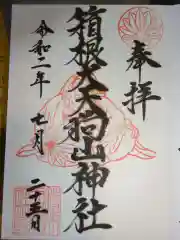 奉拝
箱根大天狗山神社
令和二年 七月
二十三日